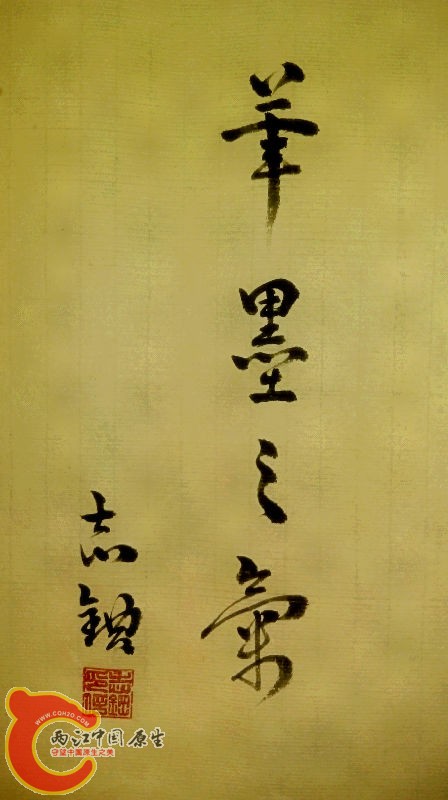 筆墨之氣
志
WWW.CQH2O.COM
两江中国原生
守望中国原生之美